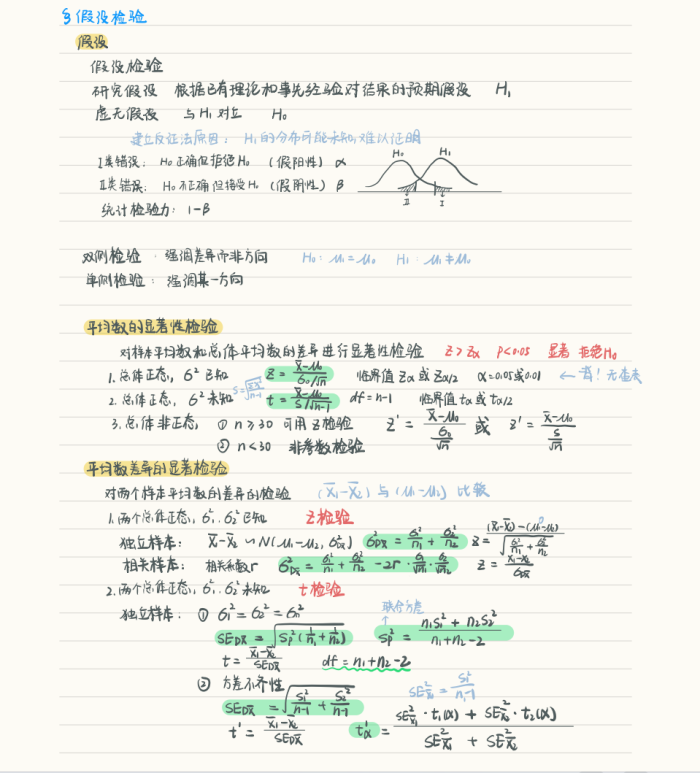 § 假设检验
假设
假设检验
研究假设 根据已有理论和事先经验对结果的预期假设 H₁
虚无假设 与H₁对立 H₀
建立反证法原因: H₁的分布可能未知,难以证明
I类错误: H₀正确但拒绝H₀ (假阳性) α
II类错误: H₀不正确但接受H₀ (假阴性) β
H₀ H₁
II I
统计检验力: 1-β
双侧检验: 强调差异而非方向 H₀: μ₁=μ₀ H₁: μ₁≠μ₀
单侧检验: 强调某一方向
平均数的显著性检验
对样本平均数和总体平均数的差异进行显著性检验 Z>Zα P<0.05 显著 拒绝H₀
1. 总体正态, σ²已知 Z = (X̄-μ₀)/(σ₀/√n) 临界值 Zα 或 Zα/2 α=0.05或0.01 ← 背!无查表
2. 总体正态, σ²未知 t = (X̄-μ₀)/(S/√n-1) df=n-1 临界值 tα 或 tα/2
3. 总体非正态, ① n≥30 可用Z检验 Z' = (X̄-μ₀)/(σ₀/√n) 或 Z' = (X̄-μ₀)/(S/√n)
② n<30 非参数检验
平均数差异的显著检验
对两个样本平均数的差异的检验 (X̄₁-X̄₂) 与 (μ₁-μ₂) 比较
1. 两个总体正态, σ₁². σ₂²已知 Z检验
独立样本: X̄₁-X̄₂ ∽ N(μ₁-μ₂, σ²DX̄) σ²DX̄ = σ₁²/n₁ + σ₂²/n₂ Z = ((X̄₁-X̄₂)-(μ₁-μ₂))/√(σ₁²/n₁ + σ₂²/n₂) 0
相关样本: 相关系数r σ²DX̄ = σ₁²/n₁ + σ₂²/n₂ - 2r·σ₁/√n₁·σ₂/√n₂ Z = (X̄₁-X̄₂)/σDX̄
2. 两个总体正态, σ₁². σ₂²未知 t检验
独立样本: ① σ₁² = σ₂² = σ₀² 联合方差
SEDX̄ = √(Sp²(1/n₁+1/n₂)) Sp² = (n₁S₁²+n₂S₂²)/(n₁+n₂-2)
t = (X̄₁-X̄₂)/SEDX̄ df=n₁+n₂-2
② 方差不齐性 SE²X̄₁ = S₁²/(n₁-1)
SEDX̄ = √(S₁²/(n-1) + S₂²/(n-1))
t' = (X̄₁-X̄₂)/SEDX̄ t'α = (SE²X̄₁·t₁(α) + SE²X̄₂·t₂(α))/(SE²X̄₁ + SE²X̄₂)